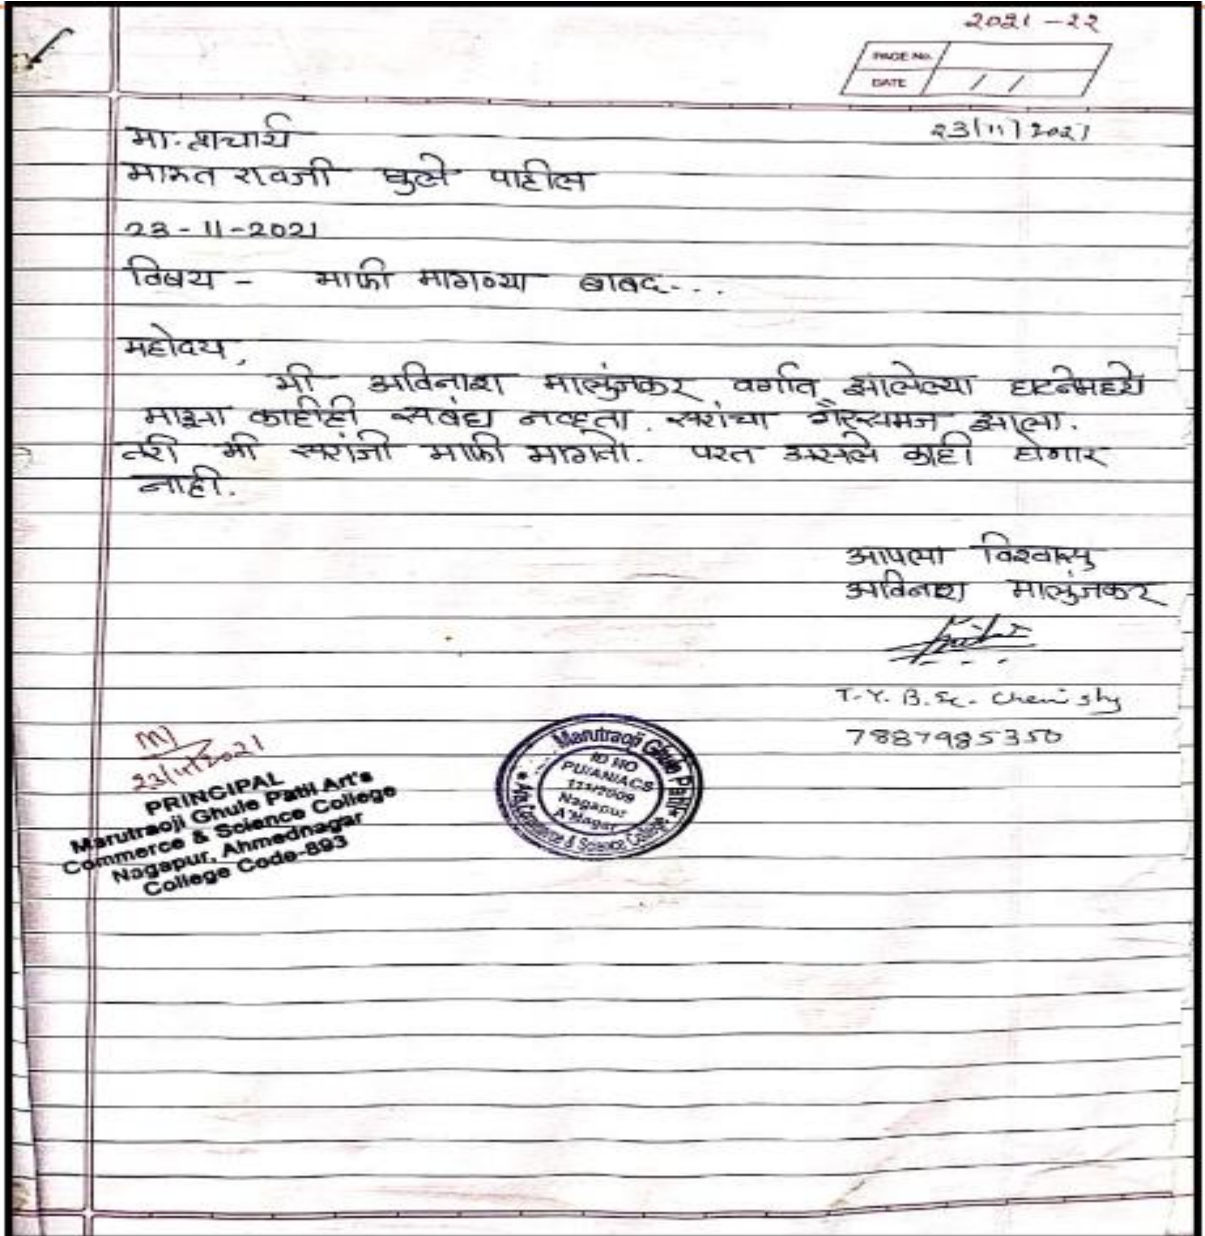 2021-22
PAGE No.
DATE / /
23/11/2021
मा. प्राचार्य
मारुतरावजी घुले पाटील
23-11-2021
विषय - माफी मागण्या बाबद...
महोदय,
मी अविनाश मालुंजकर वर्गात झालेल्या घटनेमध्ये
माझा काहीही सबंध नव्हता. सरांचा गैरसमज झाला.
तरी मी सरांजी माफी मागतो. परत असले काही होणार
नाही.
आपला विश्वासु
अविनाश मालुंजकर
T.Y. B.Sc. Chemistry
7887985350
23/11/2021
PRINCIPAL
Marutraoji Ghule Patil Art's
Commerce & Science College
Nagapur, Ahmednagar
College Code-893
Marutraoji Ghule Patil
Arts, Commerce & Science College
ID NO
PU/AN/ACS
111/2009
Nagapur
A'Nagar